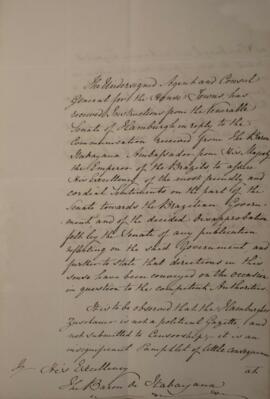 The Undersigned Agent and Consul
General for the Hanse Towns, has
received Instructions from the Venerable
Senate of Hamburgh in reply to the
Communication received from the Baron
Itabayana Ambassador from His Majesty
the Emperor of the Brazils to assure
His Excellency of the most friendly and
cordial Sentiments on the part of the
Senate towards the Brazilian Govern-
ment and of the decided disapprobation
felt by the Senate of any publication
reflecting on the said Government and
further to state that directions in this
sense have been conveyed on the occasion
in question to the competent Authorities.
It is to be observed that the Hamburgher
Zuschauer is not a political Gazette (and
not submitted to Censorship) it is an
insignificant Pamphlet of little consequence
His Excellency
The Baron de Itabayana